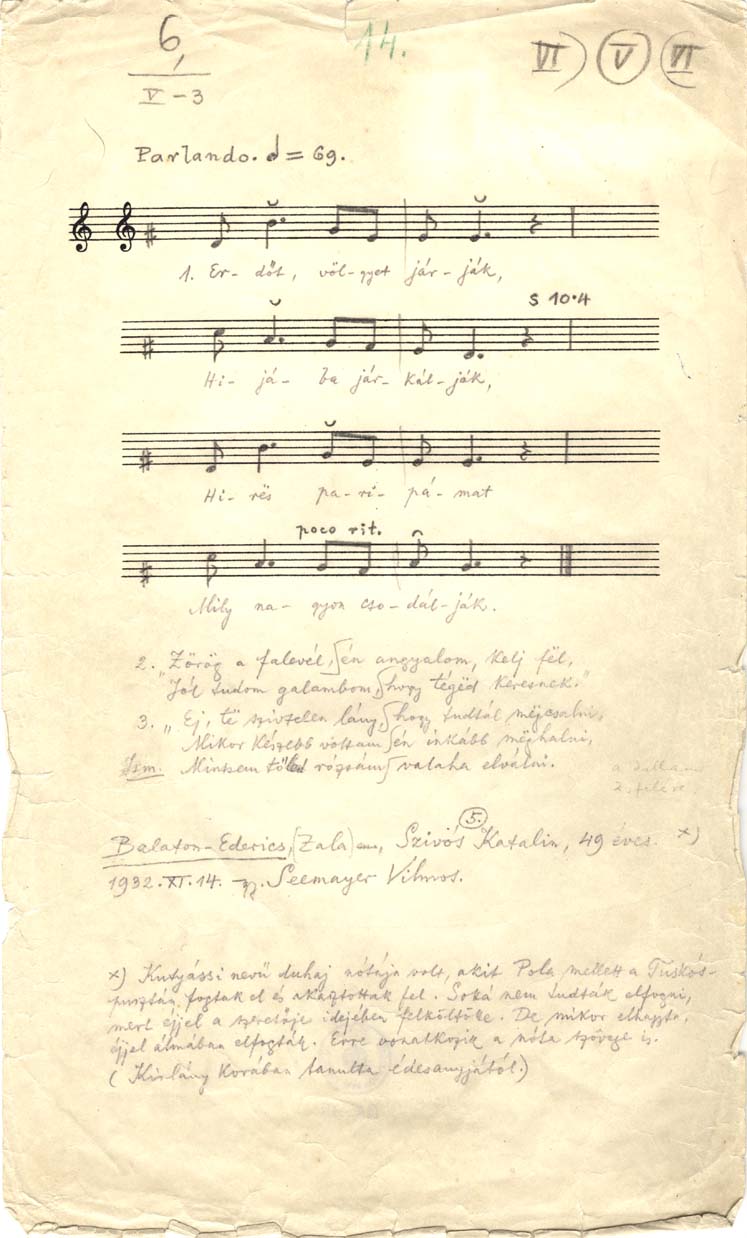 6, 14. VI) (V) (VI
V-3
Parlando. = 69.
1. Er- dőt, völ- gyet jár- ják,
S 10•4
Hi- já- ba jár- kál- ják,
Hi- rës pa- ri- pá- mat
poco rit.
Mily na- gyon cso- dál- ják.
2. "Zörög a falevél, én angyalom, kelj fël,
"Jól tudom galambom, hogy tégëd keresnek."
3. "Ej, të szivtelen lány, hogy tudtál mëgcsalni,
Mikor készebb voltam én inkább mëghalni,
Ism. Mintsem rózsám valaha elválni.
a dallam
2. felére
5.
Balaton-Ederics, (Zala) Szivós Katalin, 49 éves. x)
1932. XI. 14. Seemayer Vilmos.
x) Kutyássi nevű duhaj nótája volt, akit Pola mellett a Tüskós-
pusztán fogtak el és akasztottak fel. Soká nem tudták elfogni,
mert éjjel a szeretője idejében felköltötte. De mikor elhagyta,
éjjel álmában elfogták. Erre vonatkozik a nóta szövege is.
(Kislány korában tanulta édesanyjától.)